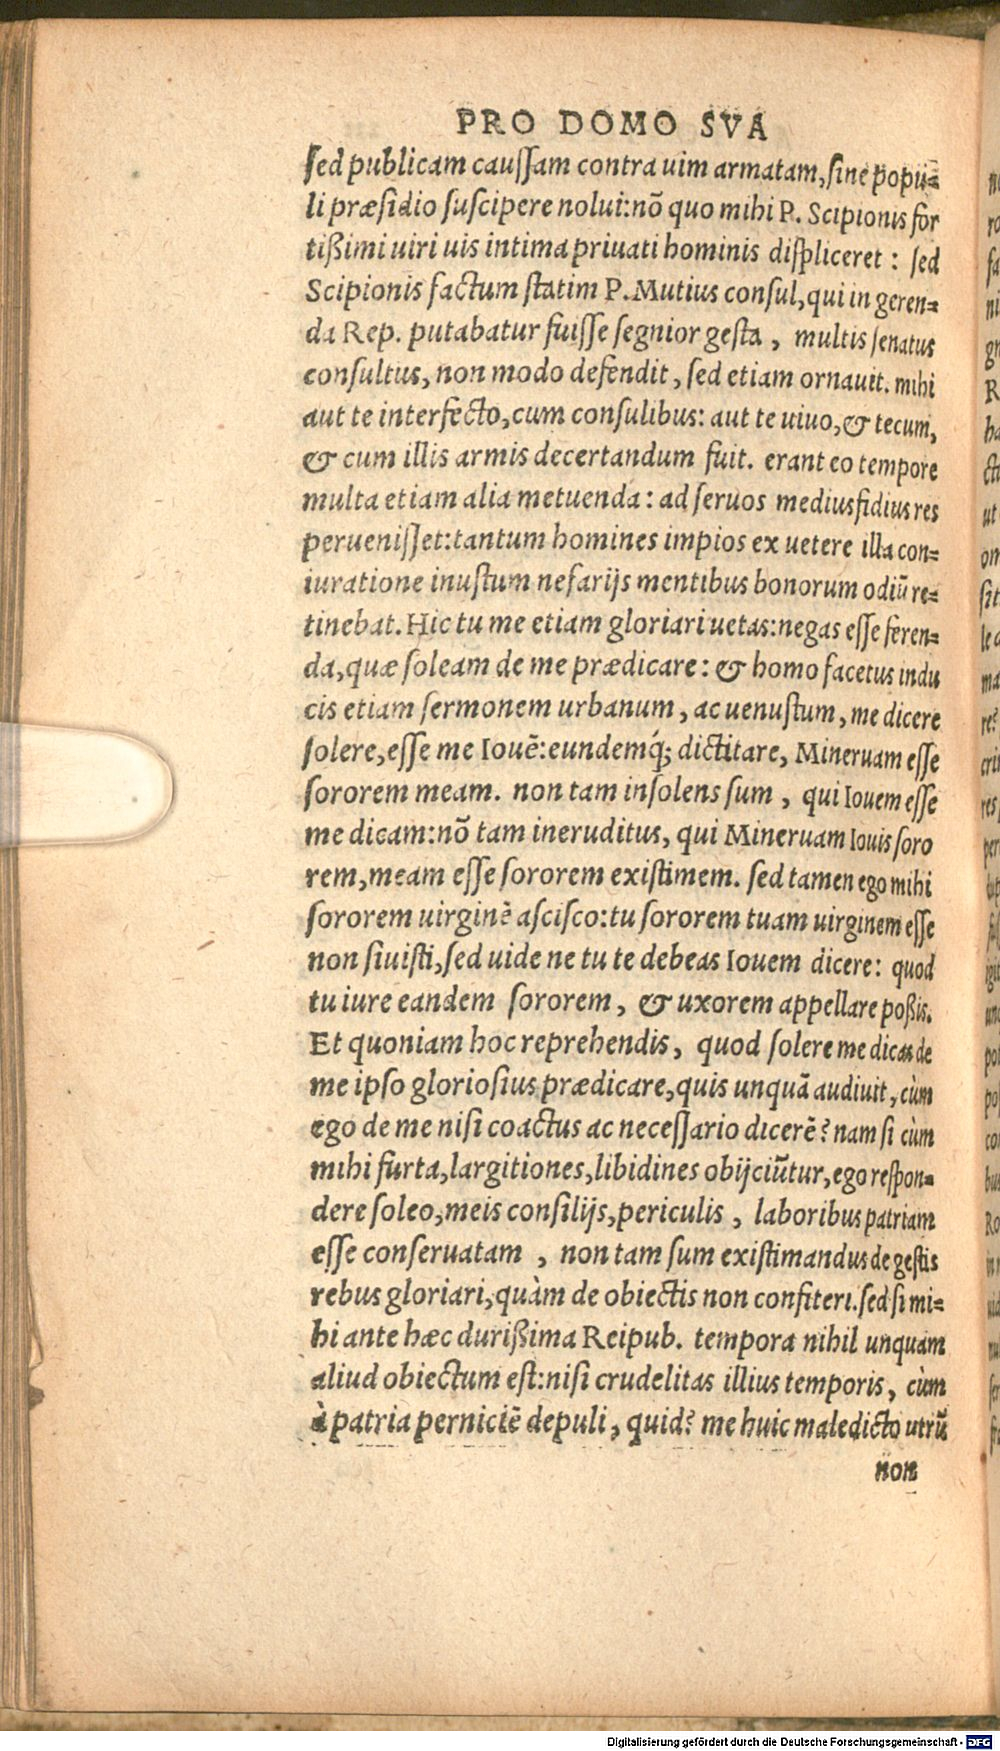 PRO DOMO SVA
ſed publicam cauſſam contra uim armatam, ſine popu=
li præſidio ſuſcipere nolui: nō quo mihi P. Scipionis for
tißimi uiri uis intima priuati hominis diſpliceret: ſed
Scipionis factum ſtatim P. Mutius conſul, qui in geren=
da Rep. putabatur fuiſſe ſegnior geſta, multis ſenatus
conſultus, non modo defendit, ſed etiam ornauit. mihi
aut te interfecto, cum conſulibus: aut te uiuo, & tecum,
& cum illis armis decertandum fuit. erant eo tempore
multa etiam alia metuenda: ad ſeruos mediusfidius res
perueniſſet: tantum homines impios ex uetere illa con=
iuratione inuſtum nefarijs mentibus bonorum odiū re=
tinebat. Hic tu me etiam gloriari uetas: negas eſſe feren=
da, quæ ſoleam de me prædicare: & homo facetus indu
cis etiam ſermonem urbanum, ac uenuſtum, me dicere
ſolere, eſſe me Iouē: eundemq́; dictitare, Mineruam eſſe
ſororem meam. non tam inſolens ſum, qui Iouem eſſe
me dicam: nō tam ineruditus, qui Mineruam Iouis ſoro
rem, meam eſſe ſororem exiſtimem. ſed tamen ego mihi
ſororem uirginē aſciſco: tu ſororem tuam uirginem eſſe
non ſiuiſti, ſed uide ne tu te debeas Iouem dicere: quod
tu iure eandem ſororem, & uxorem appellare poßis.
Et quoniam hoc reprehendis, quod ſolere me dicas de
me ipſo glorioſius prædicare, quis unquā audiuit, cùm
ego de me niſi coactus ac neceſſario dicerē? nam ſi cùm
mihi furta, largitiones, libidines obijciūtur, ego reſpon=
dere ſoleo, meis conſilijs, periculis, laboribus patriam
eſſe conſeruatam, non tam ſum exiſtimandus de geſtis
rebus gloriari, quàm de obiectis non confiteri. ſed ſi mi=
hi ante hæc durißima Reipub. tempora nihil unquam
aliud obiectum eſt: niſi crudelitas illius temporis, cùm
à patria perniciē depuli, quid? me huic maledicto utrū
non
Digitalisierung gefördert durch die Deutsche Forschungsgemeinschaft - DFG